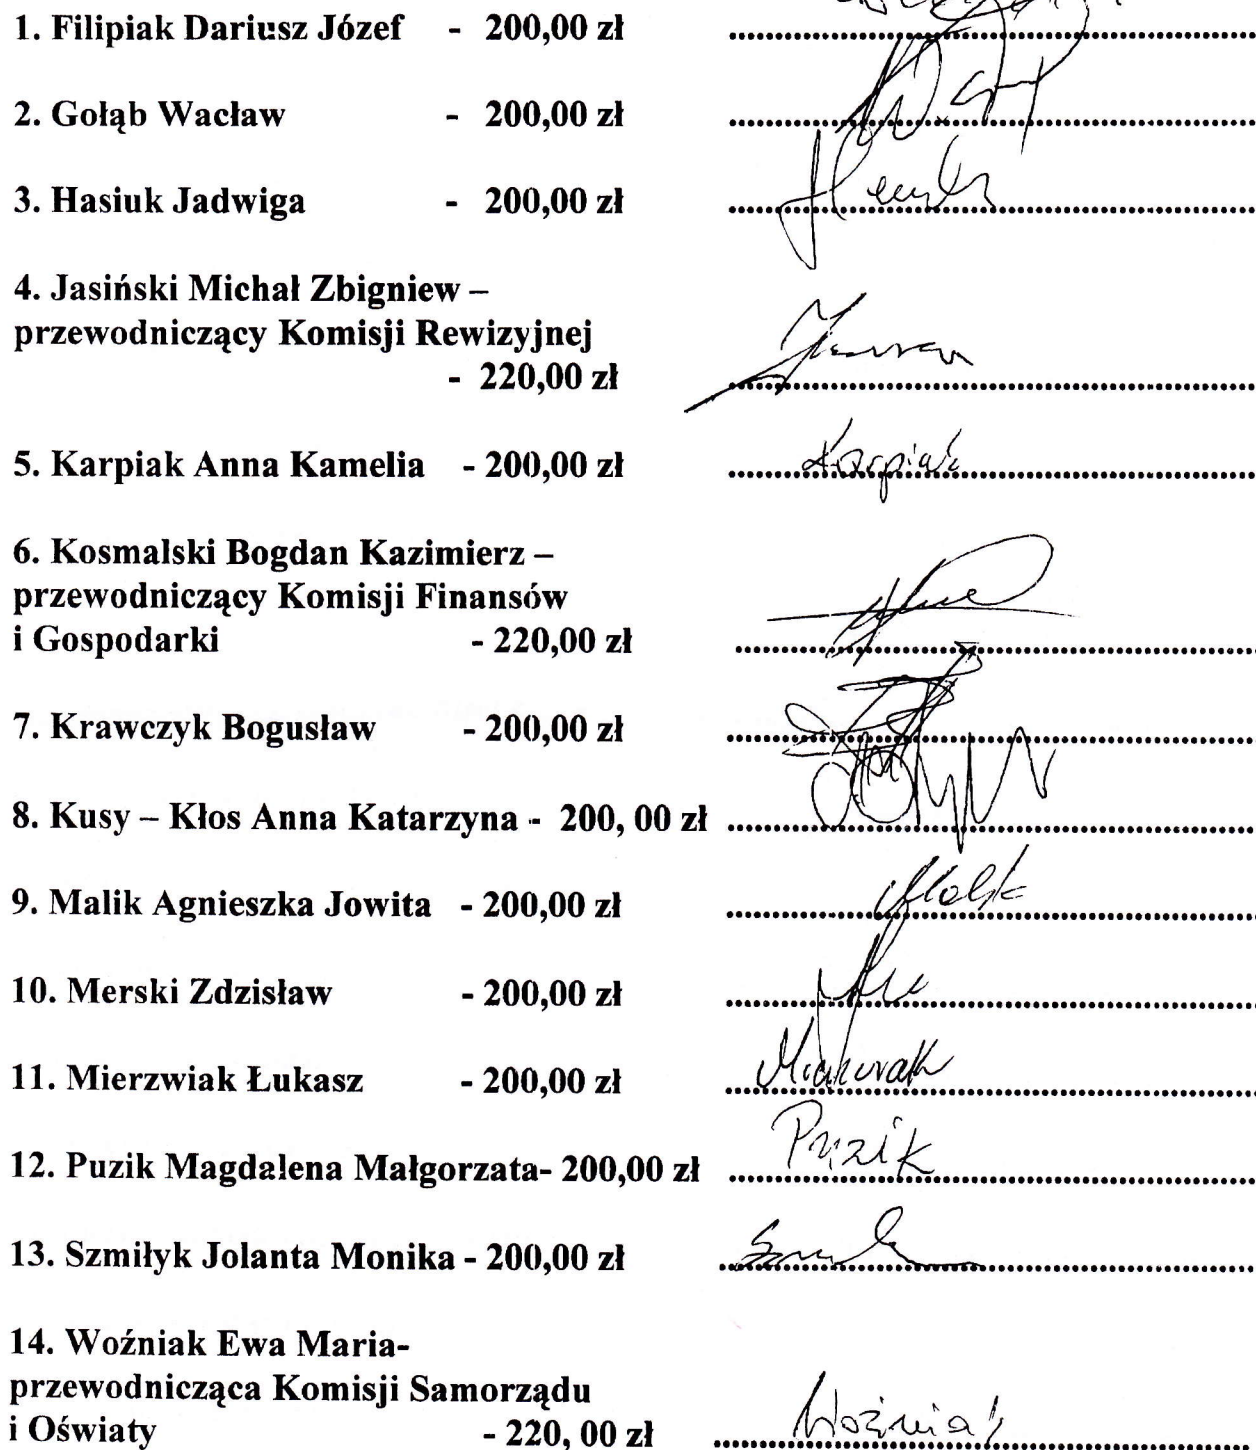 1. Filipiak Dariusz Józef - 200,00 zł
2. Gołąb Wacław - 200,00 zł
3. Hasiuk Jadwiga - 200,00 zł
4. Jasiński Michał Zbigniew –
przewodniczący Komisji Rewizyjnej
- 220,00 zł
5. Karpiak Anna Kamelia - 200,00 zł Karpiak
6. Kosmalski Bogdan Kazimierz –
przewodniczący Komisji Finansów
i Gospodarki - 220,00 zł
7. Krawczyk Bogusław - 200,00 zł
8. Kusy – Kłos Anna Katarzyna - 200, 00 zł
9. Malik Agnieszka Jowita - 200,00 zł
10. Merski Zdzisław - 200,00 zł
11. Mierzwiak Łukasz - 200,00 zł
12. Puzik Magdalena Małgorzata- 200,00 zł Puzik
13. Szmiłyk Jolanta Monika - 200,00 zł
14. Woźniak Ewa Maria-
przewodnicząca Komisji Samorządu
i Oświaty - 220, 00 zł Woźniak